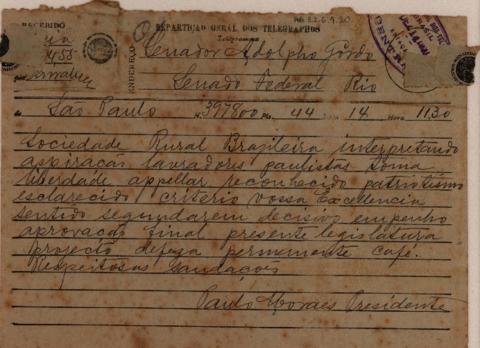 RECEBIDO
REPARTIÇÃO GERAL DOS TELEGRAPHOS
Telegramma
ENDEREÇO
Senador Adolpho Gordo
Senado Federal Rio
São Paulo N. 397800 Pls. 44 Data 14 Hora 1130
Sociedade Rural Brazileira interpretando
aspiração lavradores paulistas toma
liberdade appellar reconhecido patriotismo
esclarecido criterio vossa Excellencia
sentido segundarem decisivo empenho
aprovação final presente legislatura
projecto defeza permanente café.
Respeitosas Saudações
Paulo Moraes Presidente